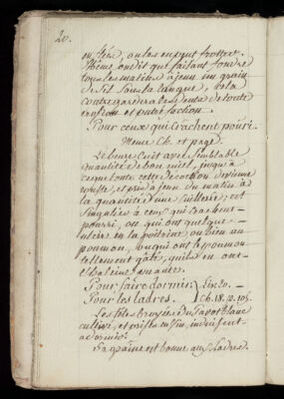 20.
entière, ou les en peut frotter.
Plines, on dit que faisant fondre
tous les matins à jeun un grain
de sel sous la langue, cela
contregardera les dents de toute
et putréfaction.
Pour ceux qui crachent pourri.
Meme Ch. et page.
Le beurre cuit avec semblable
quantité de bon miel, jusqu'à
ce que toute cette décoction devienne
et pris à jeun du matin à
la quantité d'une cuillerée; est
singulier à ceux qui crachent
pourri, ou qui ont quelque
ulcère en la poitrine ou bien au
poumon, ou qui ont le poumon
tellement gâté, qu'ils en ont
l'haleine puante.
Pour faire dormir. Liv. 20.
Pour les ladres. Ch. 18. p. 105.
Les fleurs du Pavot blanc
cultivé, et mis en vin, induisent
à dormir.
La graine est bonne aux Ladres.